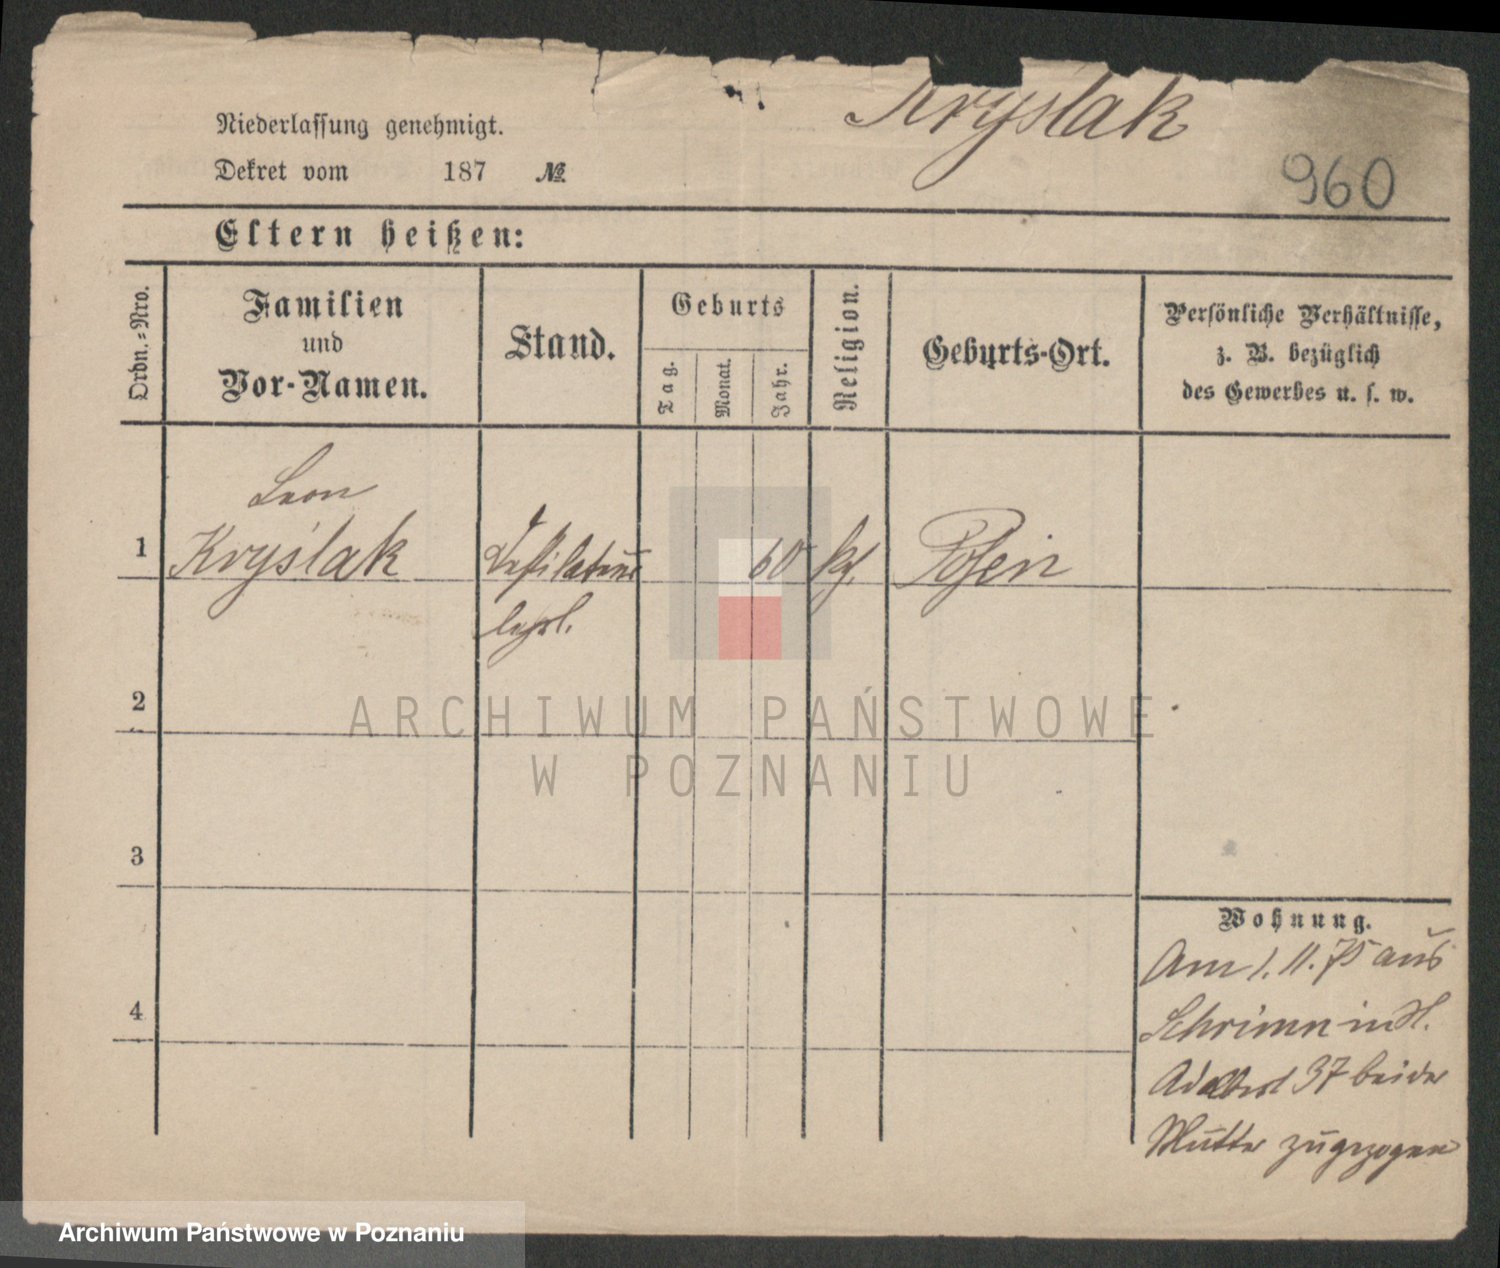 Kryślak
Niederlassung genehmigt.
Dekret vom 187 №
960
Eltern heißen:
Ordn.=Nro.
Familien
und
Vor-Namen.
Stand.
Geburts
Tag.
Monat.
Jahr.
Religion.
Geburts-Ort.
Persönliche Verhältnisse,
z. B. bezüglich
des Gewerbes u. s. w.
Leon
1 Kryślak 60 Posen
2
ARCHIWUM PAŃSTWOWE
W POZNANIU
3
Wohnung.
Am 1. 11. 75 aus
4
Schrimm in St.
Adalbert 37 bei der
Mutter zugezogen
Archiwum Państwowe w Poznaniu